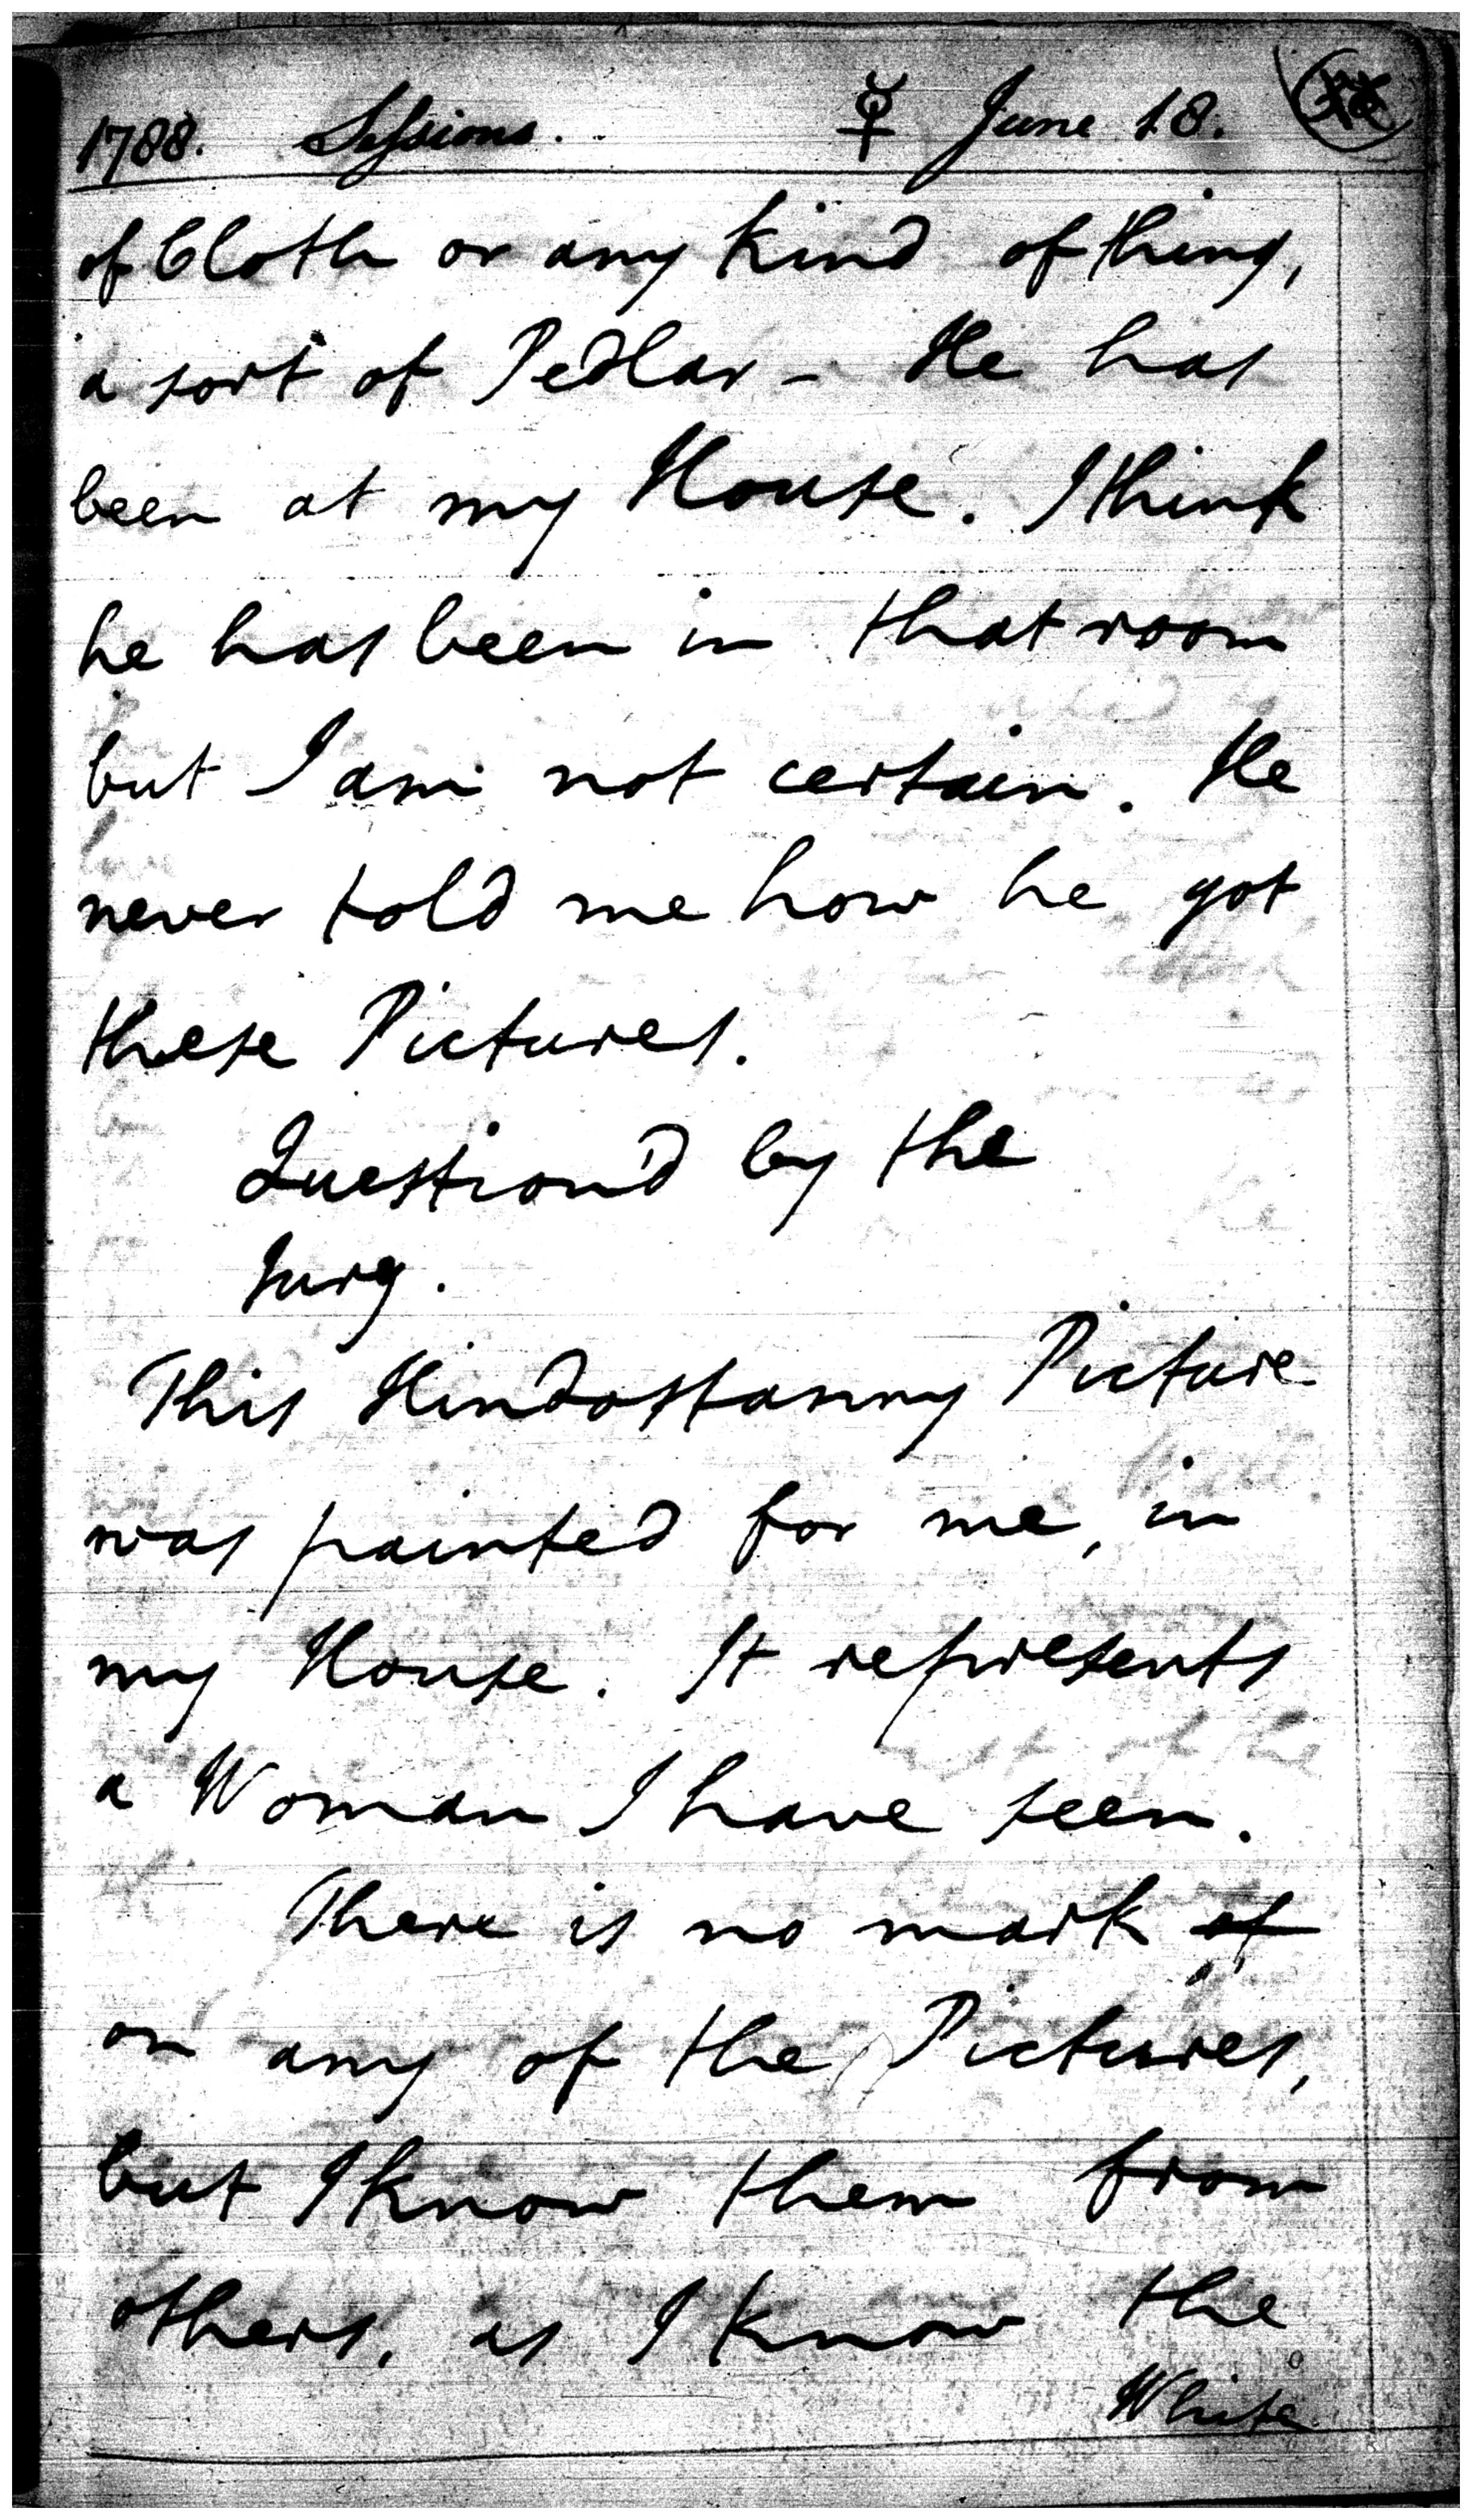 1788. Sessions. ☿ June 18.
of Cloth or any kind of thing,
a sort of Pedlar - He has
been at my House. I think
he has been in that room
but I am not certain. He
never told me how he got
these Pictures.
Question'd by the
Jury.
This Hindostanny Picture
was painted for me, in
my House. It represents
a Woman I have seen.
There is no mark of
on any of the Pictures,
but I know them from
others, as I know the
White